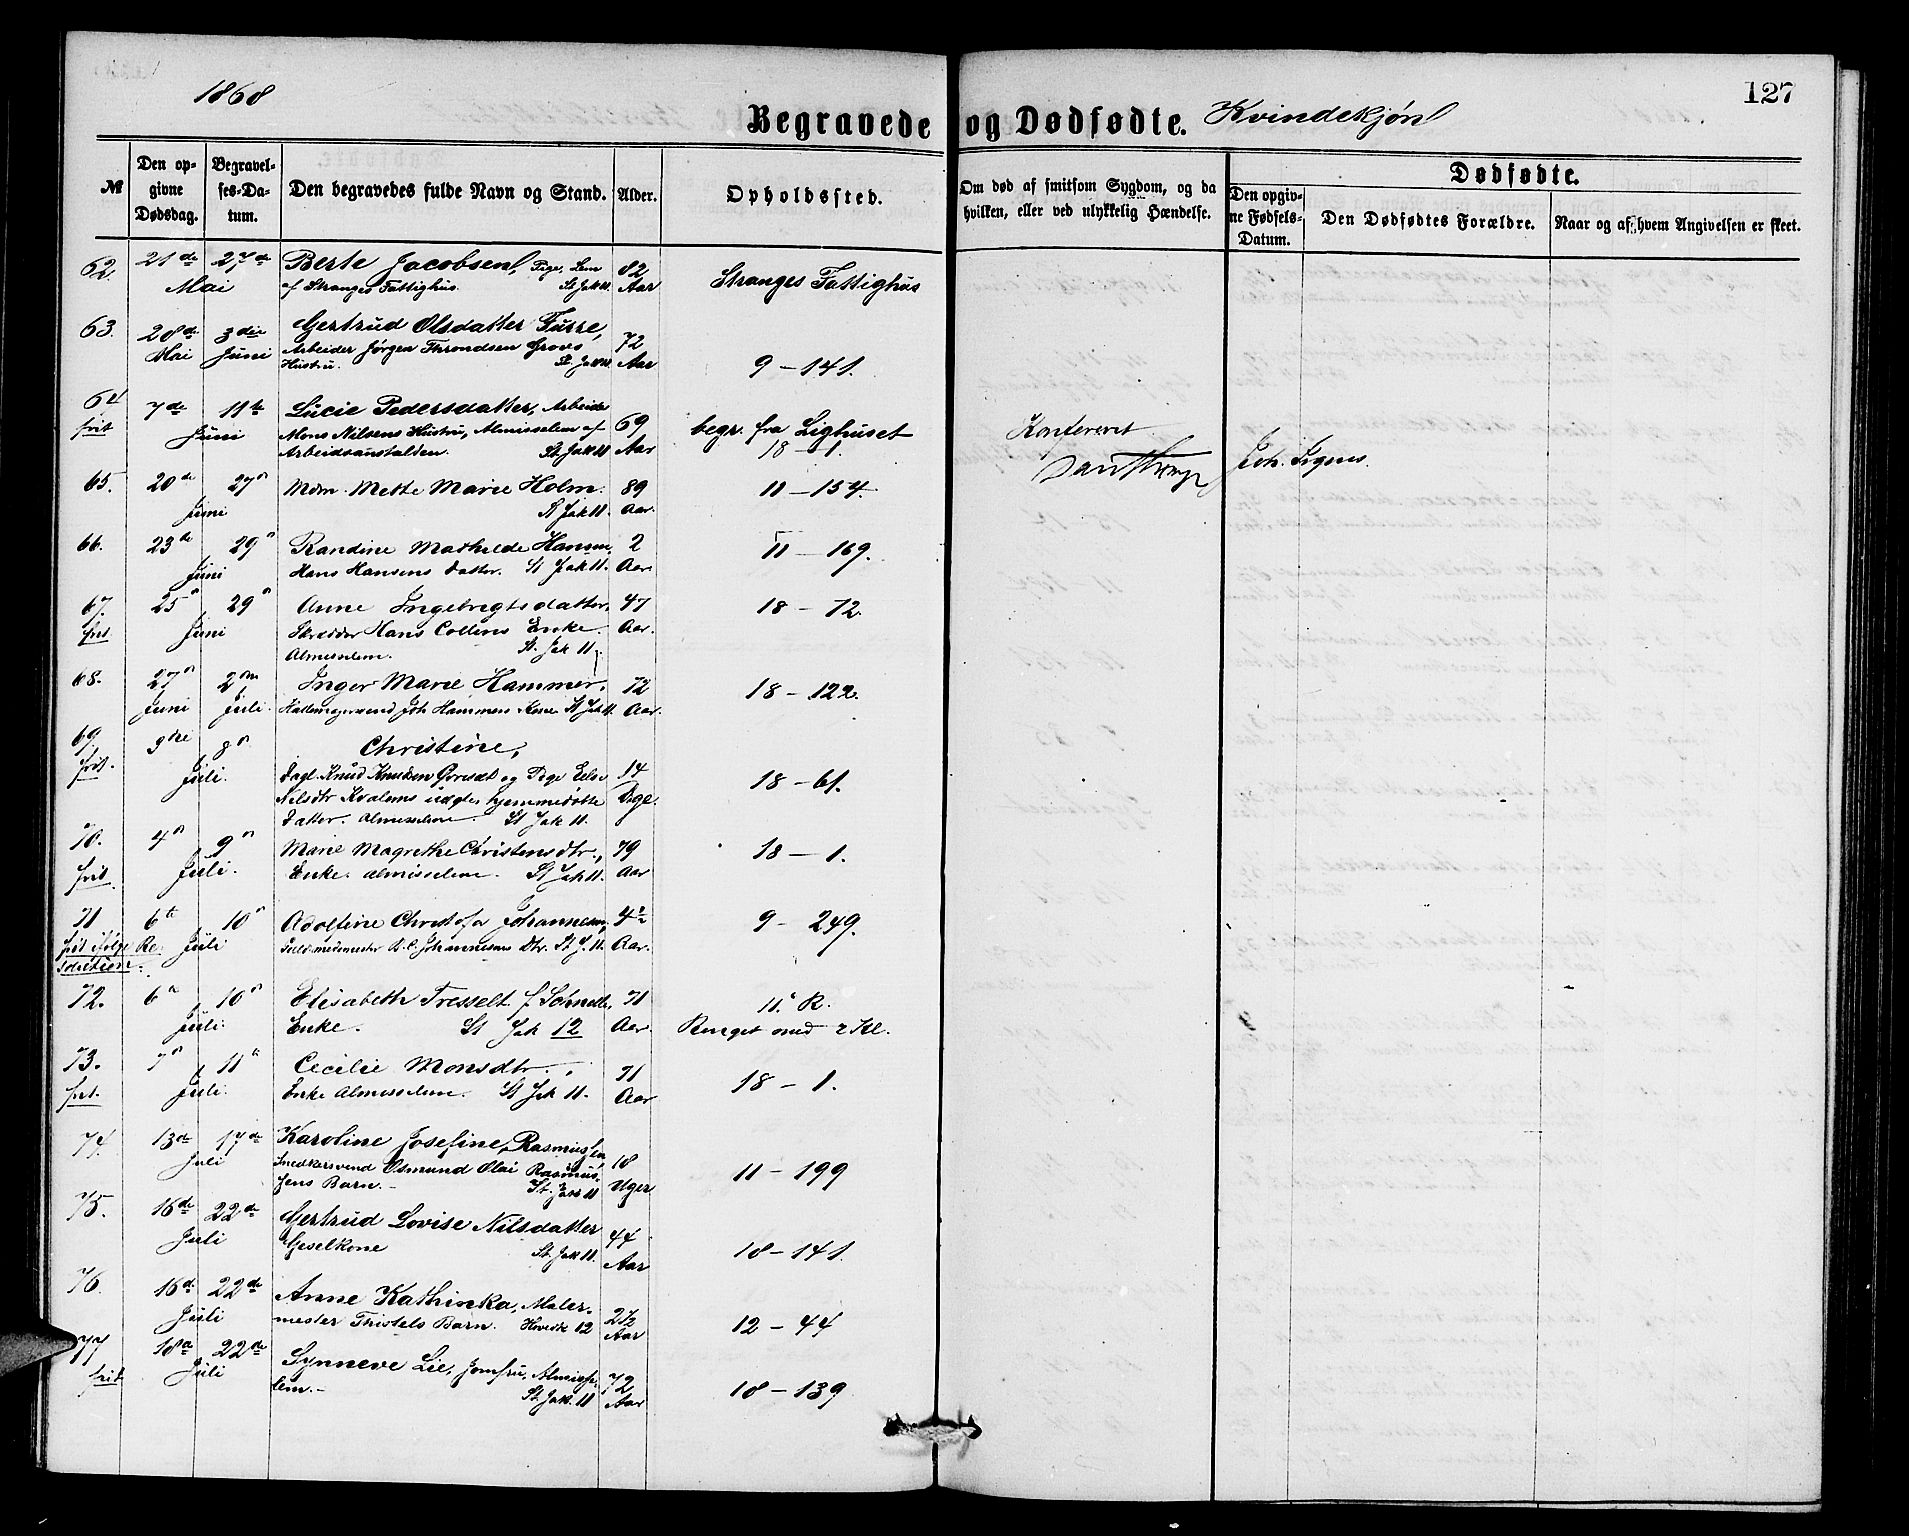 1868
Begravede og Dødfødte. Kvindekjøn
127
№
Den opgivne Dødsdag.
Begravelses-Datum.
Den begravedes fulde Navn og Stand.
Alder.
Opholdssted.
Om død af smitsom Sygdom, og da hvilken, eller ved ulykkelig Hændelse.
Dødfødte.
Den opgivne Fødsels-Datum.
Den Dødfødtes Forældre.
Naar og af hvem Angivelsen er skeet.
62. 21de 27de Berte Jacobsen, Pige, Lem 82 Stranges Fattighus
Mai af Stranges Fattighus. St Jak 11. Aar
63. 28de 3die Gertrud Olsdatter Furre, 72
Mai Juni Arbeider Jørgen Throndsen Grovs Aar 9 – 141.
Hustru. St. Jak 11
64 7de 11te Lucie Pedersdatter, Arbeider 69 begr. fra Lighuset Konfereret
frit Juni Mons Nilsens Hustru, Almisselem af Aar 18 – 1. Joh. Sigens.
Arbeidsanstalden. St. Jak 11
65. 20de 27n Mdm. Mette Marie Holm. 89 11 – 154.
Juni St Jak 11. Aar.
66. 23de 29n Randine Mathilde Hansen, 2 11 – 169.
Juni Hans Hansens Datter. St Jak 11. Aar.
67. 25n 29n Anne Ingebrigtsdatter, 47 18 – 72.
frit. Juni Skrædder Hans Collens Enke. Aar.
Almisselem. St. Jak 11.
68. 27n 2den Inger Marie Hammer, 72 18 – 122.
Juni Juli. Joh Hammers Kone St Jak 11. Aar.
69. 3die 8n Christine, 14
frit. Juli. Dagl. Knud Knudsen og Pige Dage. 18 – 61.
Nilsdtr Kvalems udgtes hjemmedøbte
Datter. Almisselem. St Jak 11.
70. 4n 9n Marie Magrethe Christensdtr., 79 18 – 1.
frit Juli. Enke. almisselem. St Jak 11. Aar
71 6te 10n Adolfine Christofa Johannesen, 4½ 9 – 249.
frit ifølge Re- Juli Johannesens Dtr. St J. 11. Aar.
solution.
72. 6te 10n Elisabeth Tresselt f Schnelle, 71 11te R.
Juli. Enke. St Jak 12 Aar. Ringet med 2 Kl.
73. 7n 11te Cecilie Monsdtr., 71 18 – 1.
frit. Juli. Enke Almisselem. St Jak 11. Aar
74. 13de 17de Karoline Josefine, Rasmussen 18
Juli Snedkersvend Osmund Olai Rasmus- Uger 11 – 199
sens Barn. St. Jak 11
75. 16de 22de Gertrud Lovise Nilsdatter 44
Juli Geselkone St. Jak 11. Aar 18 – 141.
76. 16de 22de Anne Kathinka, Maler- 2½ 12 – 44
Juli mester Thistels Barn. Hovedk 12 Aar
77 18de 22de Synneve Lie, Jomfru, Almisse- 72
frit Juli lem. St. Jak. 11 Aar 18 – 139